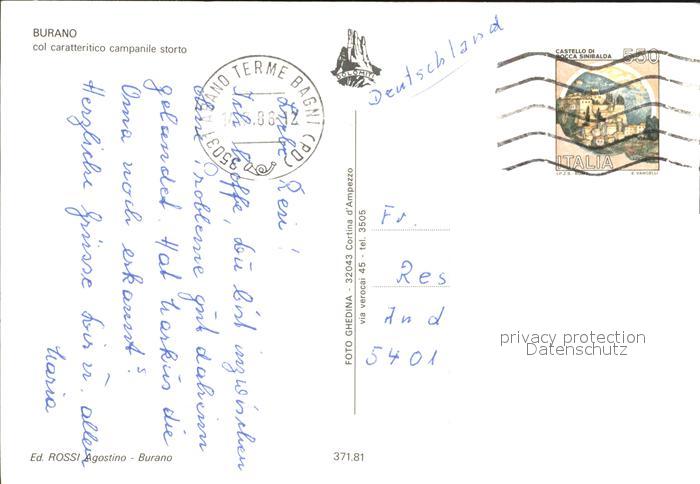 BURANO
col caratteritico campanile storto
DOLOMITI
Deutschland
CASTELLO DI
ROCCA SINIBALDA
550
ITALIA
I.P.Z.S. ROMA E. VANGELLI
ABANO TERME BAGNI (PD)
35031
Liebe Resi!
Ich hoffe, Du bist inzwischen
ohne Probleme gut daheim
gelandet. Hat Markus die
Oma noch erkannt?
Herzliche Grüsse Dir u. allen
Maria
FOTO GHEDINA - 32043 Cortina d'Ampezzo
via verocai 45 - tel. 3505
Fr.
Res
And
5401
privacy protection
Datenschutz
Ed. ROSSI Agostino - Burano
371.81